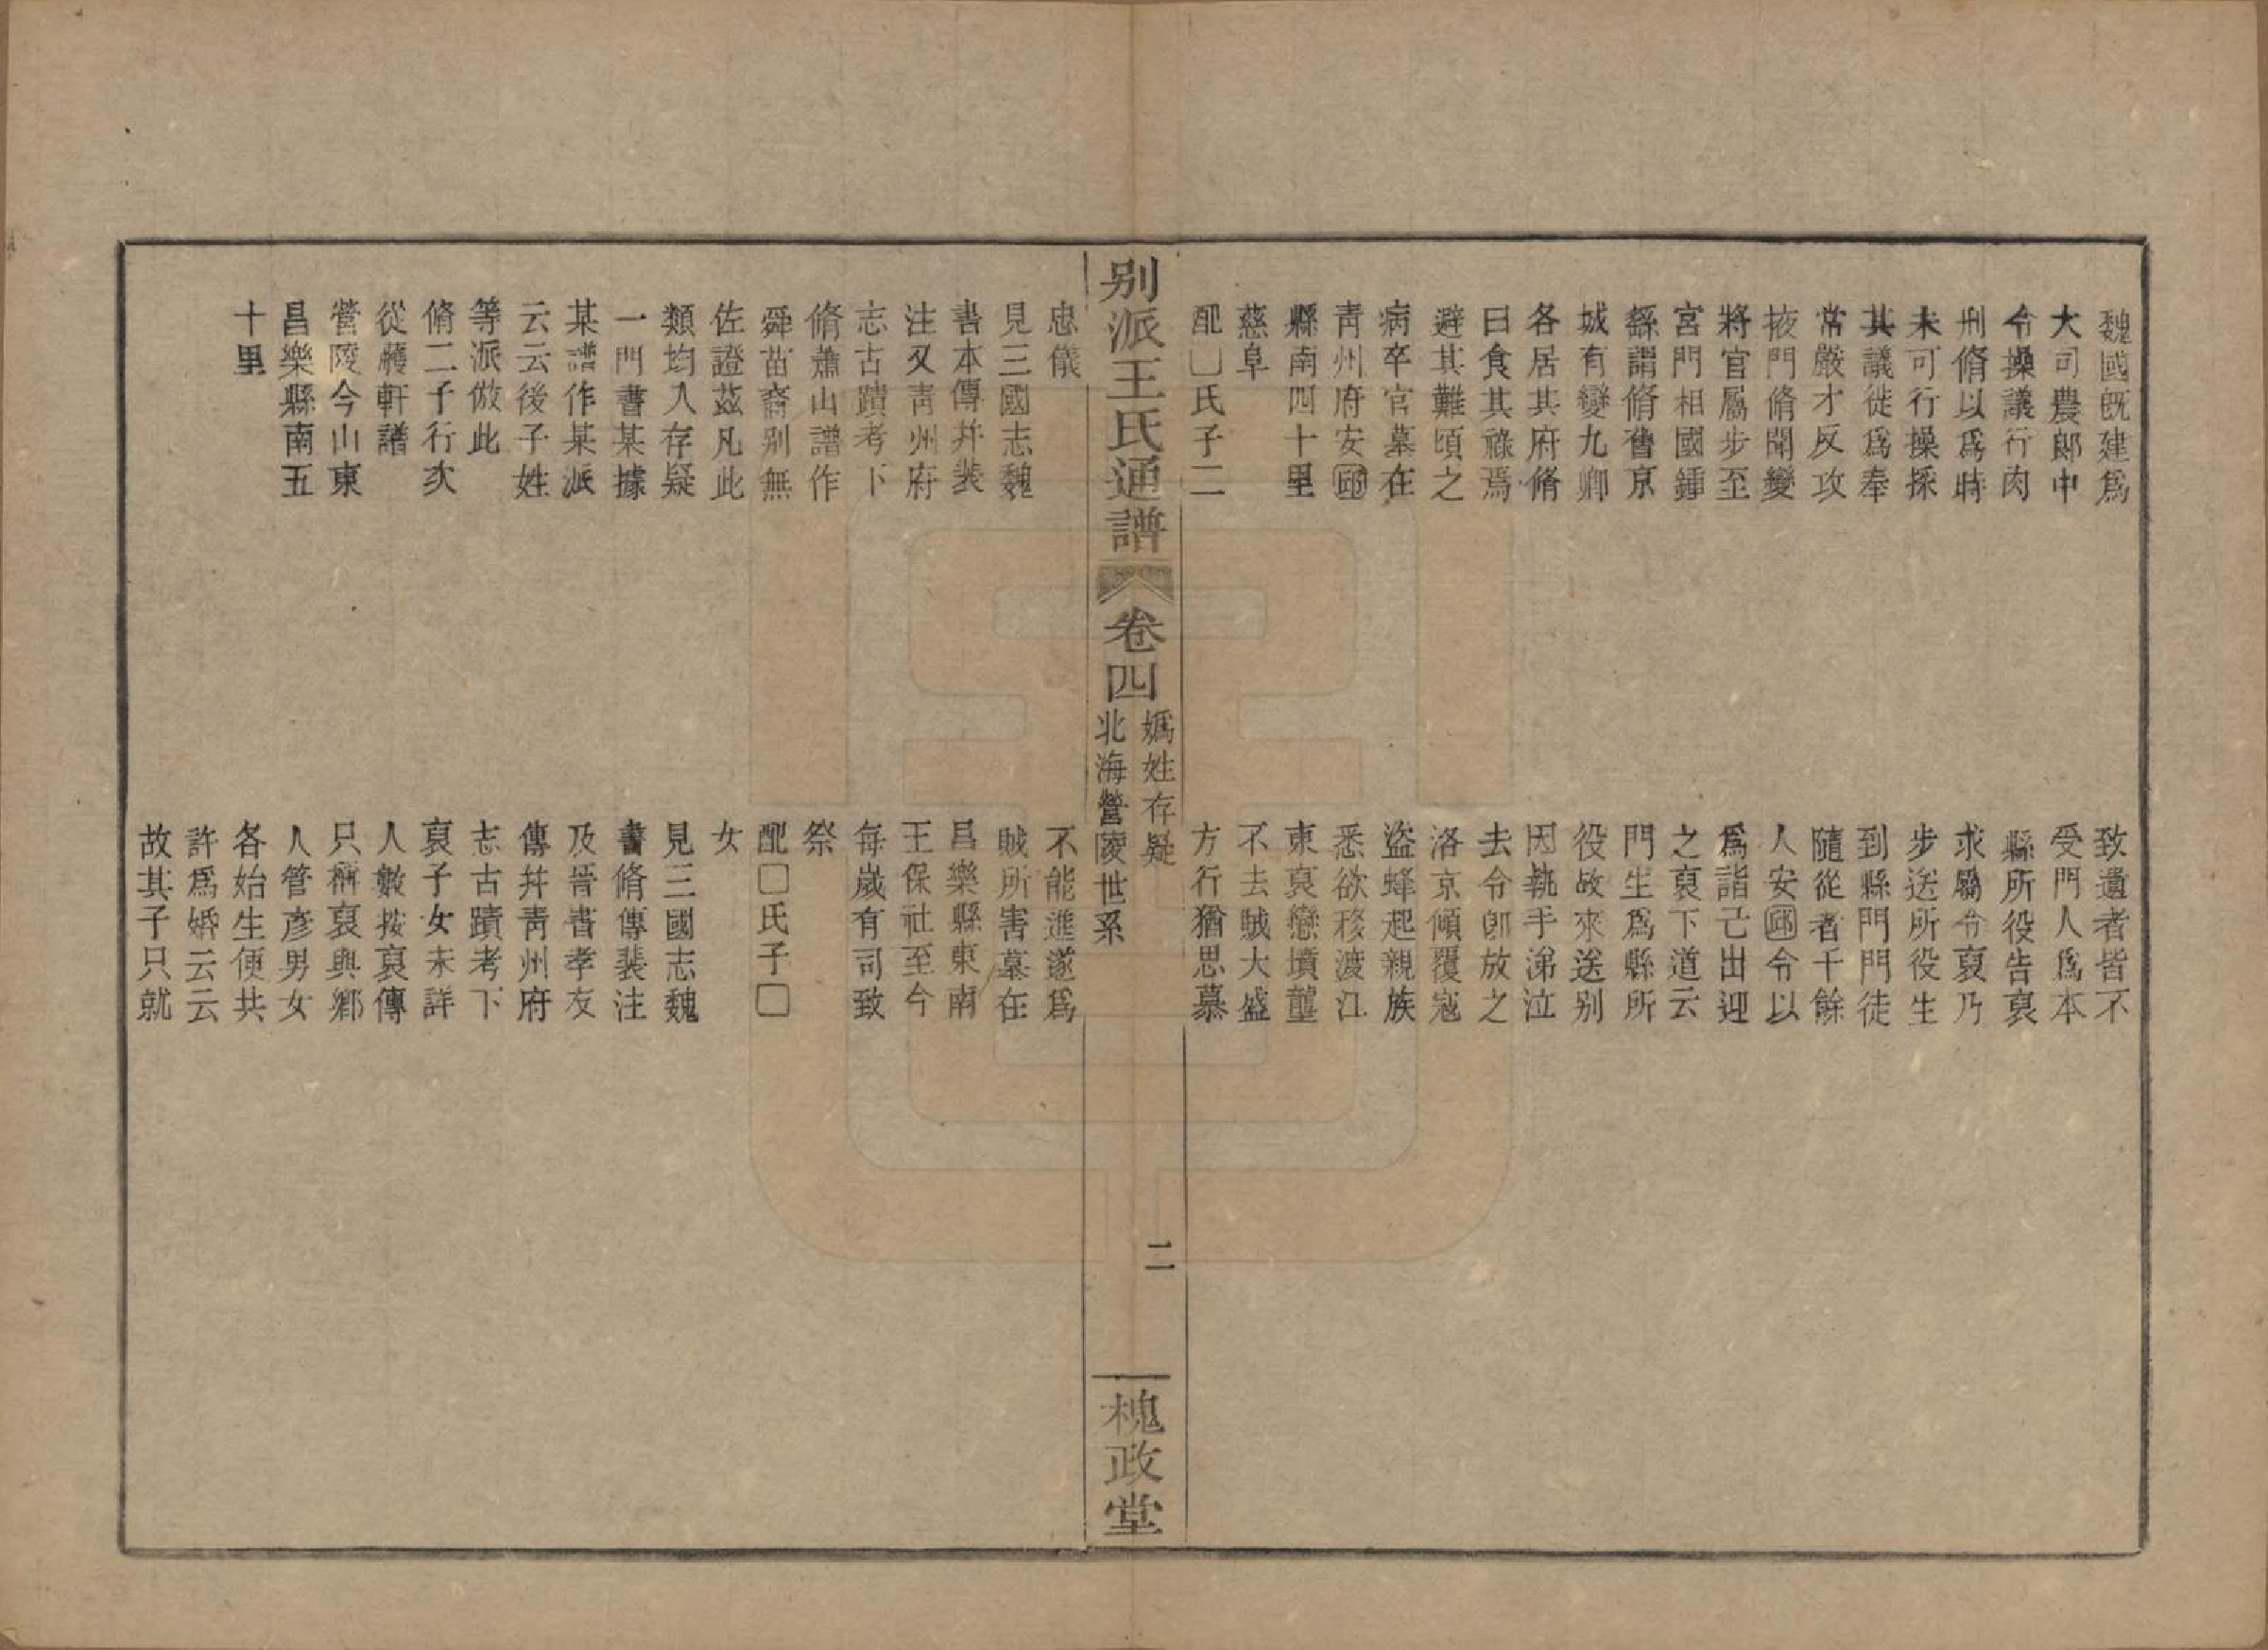 魏國旣建爲
大司農郎中
令操議行肉
刑脩以爲時
未可行操採
其議徙爲奉
常嚴才反攻
掖門脩聞變
將官屬步至
宮門相國鍾
繇謂脩舊京
城有變九卿
各居其府脩
曰食其祿焉
避其難頃之
病卒官墓在
靑州府安邱
縣南四十里
慈阜
配□氏子二
忠儀
見三國志魏
書本傳幷裴
注又靑州府
志古蹟考下
脩蕭山譜作
舜苗裔别無
佐證茲凡此
類均入存疑
一門書某據
某譜作某派
云云後子姓
等派倣此
脩二子行次
從蘐軒譜
營陵今山東
昌樂縣南五
十里
致遺者皆不
受門人爲本
縣所役告裒
求屬令裒乃
步送所役生
到縣門門徒
隨從者千餘
人安邱令以
爲詣己出迎
之裒下道云
門生爲縣所
役故來送别
因執手涕泣
去令卽放之
洛京傾覆寇
盜蜂起親族
悉欲移渡江
東裒戀墳壟
不去賊大盛
方行猶思慕
不能進遂爲
賊所害墓在
昌樂縣東南
王保社至今
每歲有司致
祭
配□氏子□
女
見三國志魏
書脩傳裴注
及晉書孝友
傳幷靑州府
志古蹟考下
裒子女未詳
人數按裒傳
只稱裒與鄉
人管彥男女
各始生便共
許爲婚云云
故其子只就
别派王氏通譜
卷四
嬀姓存疑
北海營陵世系
二
槐政堂